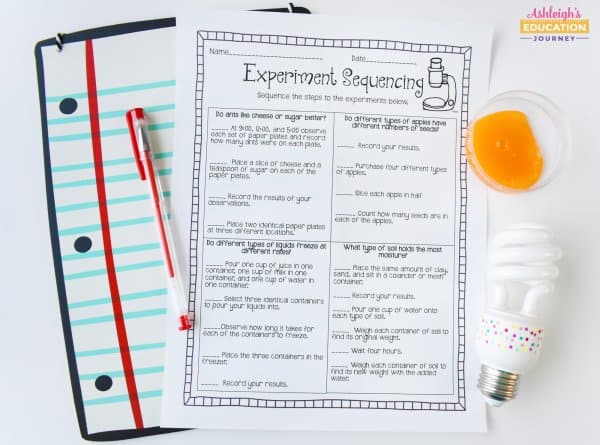 Ashleigh's
EDUCATION
JOURNEY
Name Date
Experiment Sequencing
Sequence the steps to the experiments below.
Do ants like cheese or sugar better?
At 9:00, 12:00, and 5:00 observe
each set of paper plates and record
how many ants were on each plate.
Place a slice of cheese and a
teaspoon of sugar on each of the
paper plates.
Record the results of your
observations.
Place two identical paper plates
at three different locations.
Do different types of apples have
different numbers of seeds?
Record your results.
Purchase four different types
of apples.
Slice each apple in half.
Count how many seeds are in
each of the apples.
Do different types of liquids freeze at
different rates?
Pour one cup of juice in one
container, one cup of milk in one
container, and one cup of water in
one container.
Select three identical containers
to pour your liquids into.
Observe how long it takes for
each of the containers to freeze.
Place the three containers in the
freezer.
Record your results.
What type of soil holds the most
moisture?
Place the same amount of clay,
sand, and silt in a colander or mesh
container.
Record your results.
Pour one cup of water onto
each type of soil.
Weigh each container of soil to
find its original weight.
Wait four hours.
Weigh each container of soil to
find its new weight with the added
water.